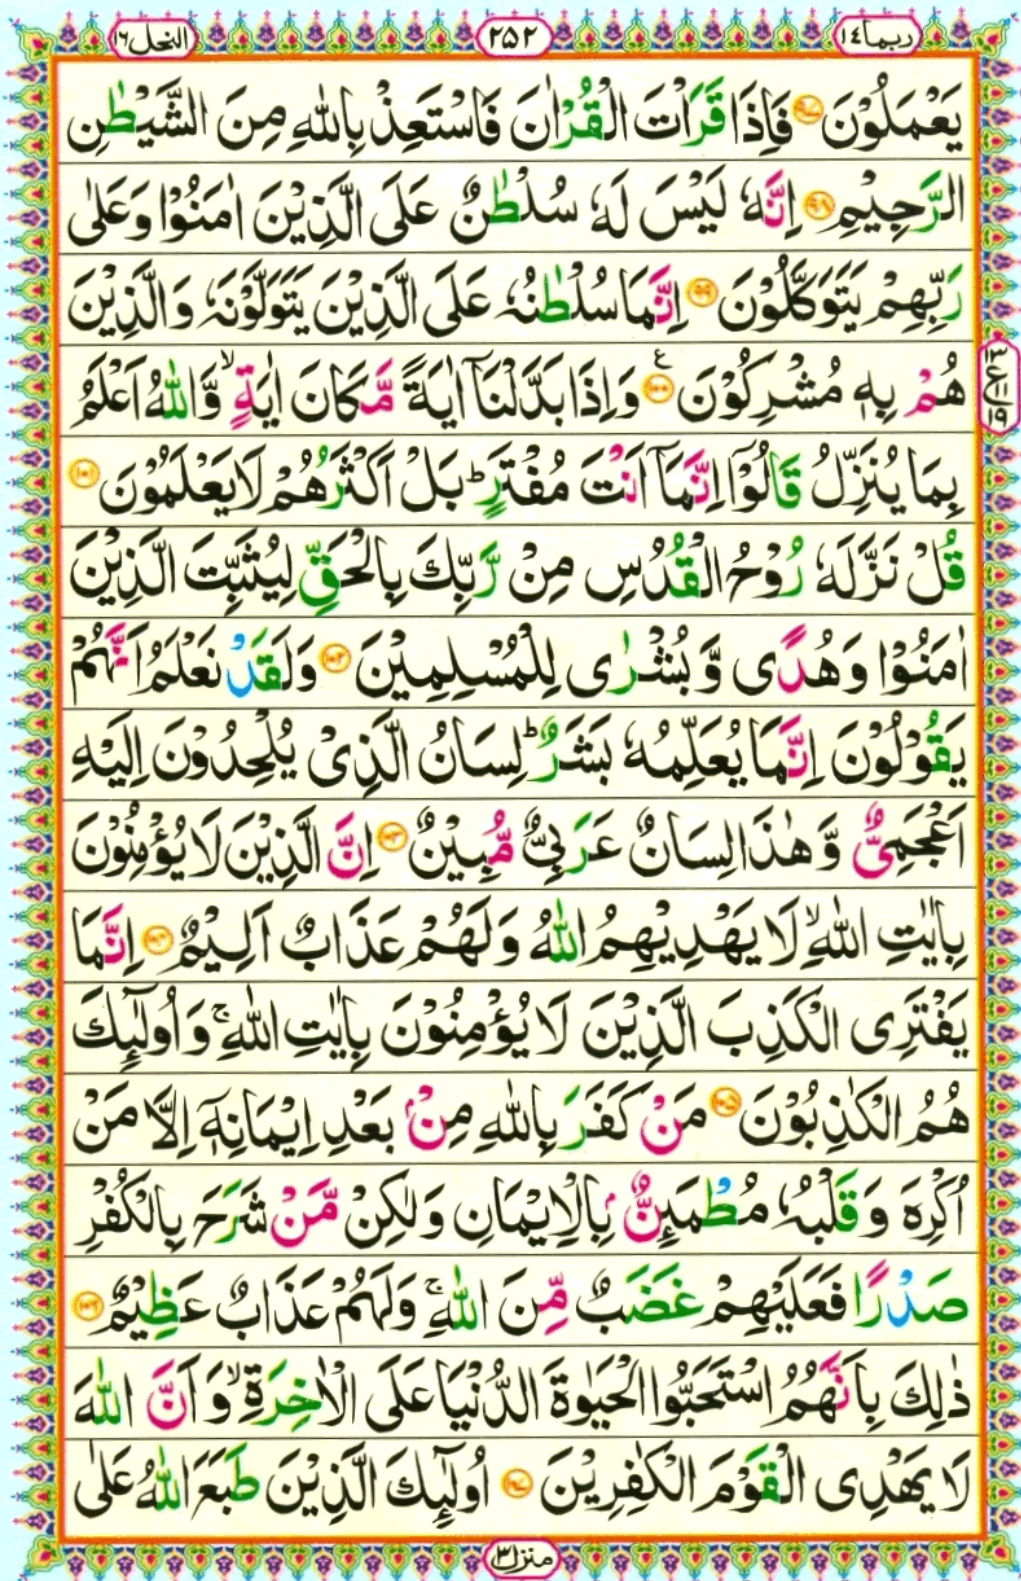 ربما ١٤
٢٥٢
النحل ١٦
يَعْمَلُوْنَ ٩٧ فَاِذَا قَرَاْتَ الْقُرْاٰنَ فَاسْتَعِذْ بِاللّٰهِ مِنَ الشَّيْطٰنِ
الرَّجِيْمِ ٩٨ اِنَّهٗ لَيْسَ لَهٗ سُلْطٰنٌ عَلَى الَّذِيْنَ اٰمَنُوْا وَعَلٰى
رَبِّهِمْ يَتَوَكَّلُوْنَ ٩٩ اِنَّمَا سُلْطٰنُهٗ عَلَى الَّذِيْنَ يَتَوَلَّوْنَهٗ وَالَّذِيْنَ
هُمْ بِهٖ مُشْرِكُوْنَ ١٠٠ ع وَاِذَا بَدَّلْنَاۤ اٰيَةً مَّكَانَ اٰيَةٍۙ وَّاللّٰهُ اَعْلَمُ
١٣ ع ١١ ١٩
بِمَا يُنَزِّلُ قَالُوْۤا اِنَّمَاۤ اَنْتَ مُفْتَرٍؕ بَلْ اَكْثَرُهُمْ لَا يَعْلَمُوْنَ ١٠١
قُلْ نَزَّلَهٗ رُوْحُ الْقُدُسِ مِنْ رَّبِّكَ بِالْحَقِّ لِيُثَبِّتَ الَّذِيْنَ
اٰمَنُوْا وَهُدًى وَّبُشْرٰى لِلْمُسْلِمِيْنَ ١٠٢ وَلَقَدْ نَعْلَمُ اَنَّهُمْ
يَقُوْلُوْنَ اِنَّمَا يُعَلِّمُهٗ بَشَرٌؕ لِسَانُ الَّذِيْ يُلْحِدُوْنَ اِلَيْهِ
اَعْجَمِيٌّ وَّهٰذَا لِسَانٌ عَرَبِيٌّ مُّبِيْنٌ ١٠٣ اِنَّ الَّذِيْنَ لَا يُؤْمِنُوْنَ
بِاٰيٰتِ اللّٰهِۙ لَا يَهْدِيْهِمُ اللّٰهُ وَلَهُمْ عَذَابٌ اَلِيْمٌ ١٠٤ اِنَّمَا
يَفْتَرِى الْكَذِبَ الَّذِيْنَ لَا يُؤْمِنُوْنَ بِاٰيٰتِ اللّٰهِۚ وَاُولٰٓئِكَ
هُمُ الْكٰذِبُوْنَ ١٠٥ مَنْ كَفَرَ بِاللّٰهِ مِنْۢ بَعْدِ اِيْمَانِهٖۤ اِلَّا مَنْ
اُكْرِهَ وَقَلْبُهٗ مُطْمَئِنٌّۢ بِالْاِيْمَانِ وَلٰكِنْ مَّنْ شَرَحَ بِالْكُفْرِ
صَدْرًا فَعَلَيْهِمْ غَضَبٌ مِّنَ اللّٰهِۚ وَلَهُمْ عَذَابٌ عَظِيْمٌ ١٠٦
ذٰلِكَ بِاَنَّهُمُ اسْتَحَبُّوا الْحَيٰوةَ الدُّنْيَا عَلَى الْاٰخِرَةِۙ وَاَنَّ اللّٰهَ
لَا يَهْدِى الْقَوْمَ الْكٰفِرِيْنَ ١٠٧ اُولٰٓئِكَ الَّذِيْنَ طَبَعَ اللّٰهُ عَلٰى
منزل ٣